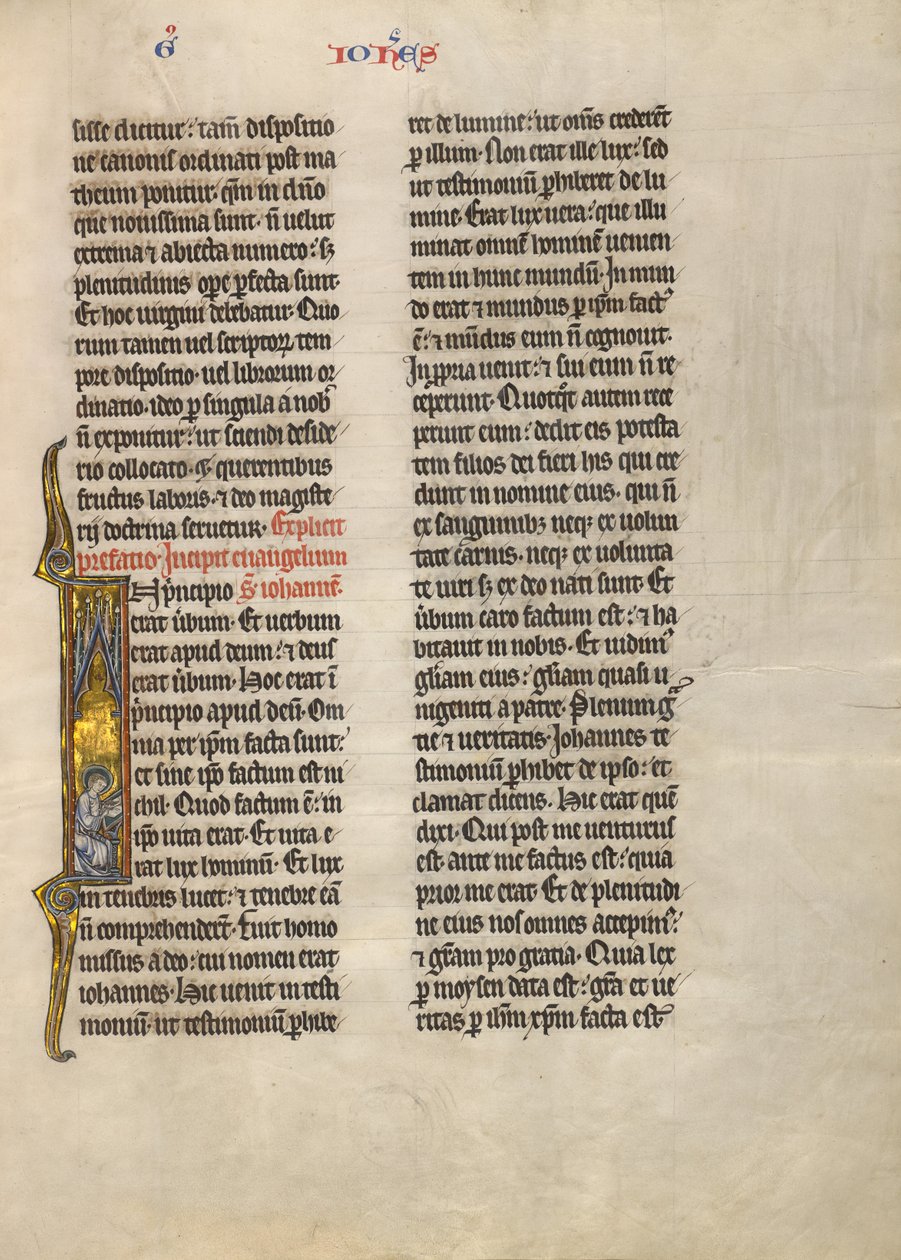 IOHES
sisse dicitur: tam̄ dispositio
ne canonis ordinati post ma
theum ponitur. qm̄ in dn̄o
que nouissima sunt. n̄ uelut
extrema ⁊ abiecta numero: sꝫ
plenitudinis oꝑe ꝑfecta sunt.
Et hoc uirgini debebatur. Quo
rum tamen uel scriptoꝝ tem
pore dispositio. uel librorum or
dinatio. ideo ꝑ singula a nob̄
n̄ exponitur: ut sciendi deside
rio collocato. ⁊ querentibus
fructus laboris. ⁊ deo magiste
rij doctrina seruetur. Explicit
prefatio. Incipit euangelium
s̄. iohannē.
In pͥncipio
erat u̇bum. Et uerbum
erat apud deum: ⁊ deus
erat u̇bum. Hoc erat ī
pͥncipio apud deū. Om
nia per ip̄m facta sunt:
et sine ip̄o factum est ni
chil. Quod factum ē: in
ip̄o uita erat. Et uita e
rat lux hominū. Et lux
in tenebris lucet: ⁊ tenebre eā
n̄ comprehender̄t. Fuit homo
missus a deo: cui nomen erat
iohannes. Hic uenit in testi
moniū. ut testimoniū ꝑhibe
ret de lumine: ut om̄s crederēt
ꝑ illum. Non erat ille lux: sed
ut testimoniū ꝑhiberet de lu
mine. Erat lux uera: que illu
minat omnē hominē uenien
tem in hunc mundū. In mun
do erat ⁊ mundus ꝑ ip̄m factꝰ
ē: ⁊ mūdus eum n̄ cognouit.
In ꝓpria uenit: ⁊ sui eum n̄ re
ceperunt. Quotqͦt autem rece
perunt eum: dedit eis potesta
tem filios dei fieri his qui cre
dunt in nomine eius. qui n̄
ex sanguinibꝫ neqꝫ ex uolun
tate carnis. neqꝫ ex uolunta
te uiri sꝫ ex deo nati sunt. Et
u̇bum caro factum est: ⁊ ha
bitauit in nobis. Et uidimꝰ
gl̄iam eius: gl̄iam quasi u
nigeniti a patre. Plenum gͣ
tie ⁊ ueritatis. Iohannes te
stimoniū ꝑhibet de ipso: et
clamat dicens. Hic erat quē
dixi. Qui post me uenturus
est. ante me factus est: quia
prior me erat. Et de plenitudi
ne eius nos omnes accepimꝰ:
⁊ gr̄am pro gratia. Quia lex
ꝑ moysen data est: gr̄a et ue
ritas ꝑ ih̄m xp̄m facta est.